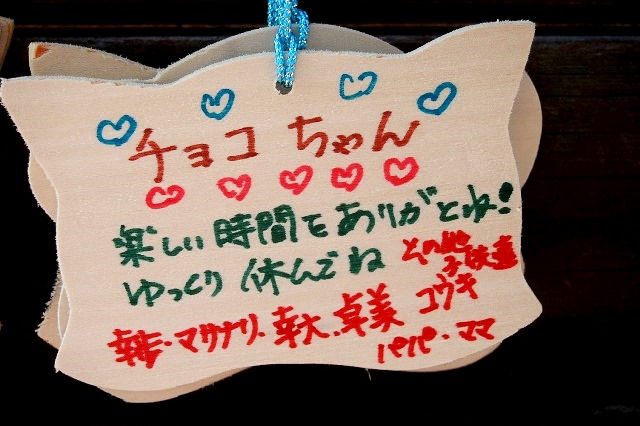 チョコちゃん
楽しい時間をありがとね!
ゆっくり休んでね
その他
子供達
マサナリ・幸大・卓美 コウキ
パパ・ママ